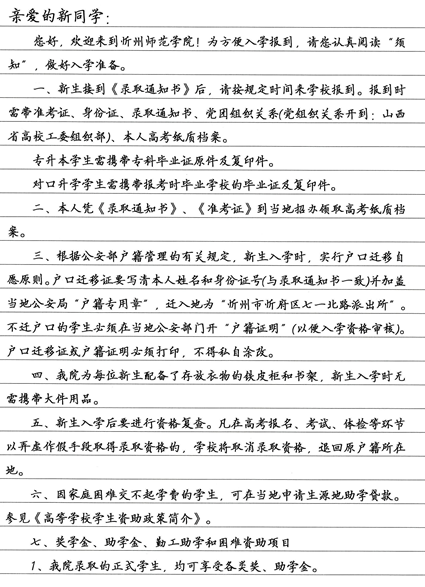 亲爱的新同学：
您好，欢迎来到忻州师范学院！为方便入学报到，请您认真阅读“须
知”，做好入学准备。
一、新生接到《录取通知书》后，请按规定时间来学校报到。报到时
需带准考证、身份证、录取通知书、党团组织关系(党组织关系开到：山西
省高校工委组织部)、本人高考纸质档案。
专升本学生需携带专科毕业证原件及复印件。
对口升学学生需携带报考时毕业学校的毕业证及复印件。
二、本人凭《录取通知书》、《准考证》到当地招办领取高考纸质档
案。
三、根据公安部户籍管理的有关规定，新生入学时，实行户口迁移自
愿原则。户口迁移证要写清本人姓名和身份证号(与录取通知书一致)并加盖
当地公安局“户籍专用章”，迁入地为“忻州市忻府区七一北路派出所”。
不迁户口的学生必须在当地公安部门开“户籍证明”(以便入学资格审核)。
户口迁移证或户籍证明必须打印，不得私自涂改。
四、我院为每位新生配备了存放衣物的铁皮柜和书架，新生入学时无
需携带大件用品。
五、新生入学后要进行资格复查。凡在高考报名、考试、体检等环节
以弄虚作假手段取得录取资格的，学校将取消录取资格，退回原户籍所在
地。
六、因家庭困难交不起学费的学生，可在当地申请生源地助学贷款。
参见《高等学校学生资助政策简介》。
七、奖学金、助学金、勤工助学和困难资助项目
1、我院录取的正式学生，均可享受各类奖、助学金。